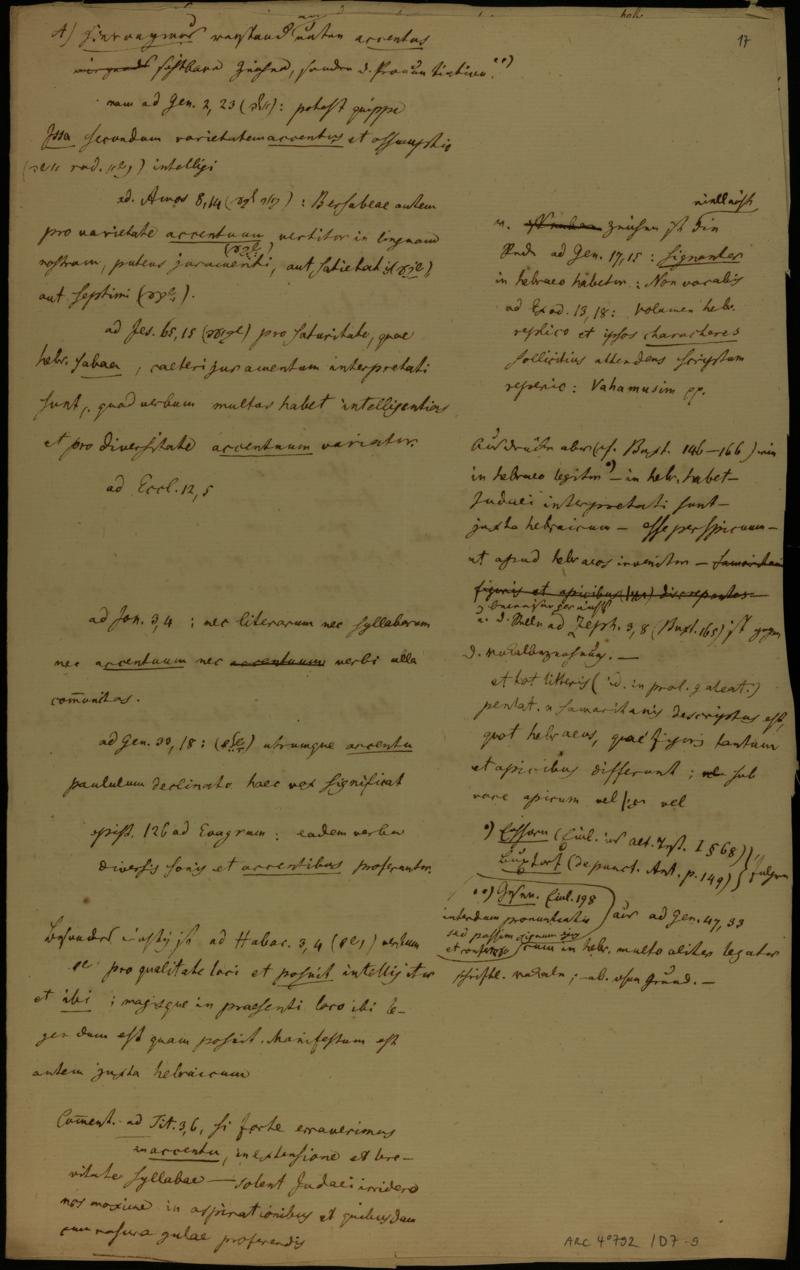 17
A) Hieronymus verstand unter accentus
sichtbare Zeichen, sondern d. Pronuntiation. °°)
nam ad Gen. 2, 23 : potest quippe
Issa secundum varietatem accentus et assumptio
rad. intelligi
ad. Amos 8,14 : Bersabeae autem
pro varietate accentuum vertitur in linguam
nostram, puteus juramenti, aut satietatis
aut septimi
ad Jes. 65, 15 pro saturitate, quae
hebr. sabaa, caeteri juramentum interpretati
sunt, quod verbum multas habet intelligentias
et pro diversitate accentuum variatur.
ad Eccl. 12, 5
ad Jon. 3, 4 : nec literarum nec syllabarum
nec accentuum nec accentuum verbi ulla
com̅unitas.
ad Gen. 30, 18 : utrumque accentu
paululum declinato haec vox significat
epist. 126 ad Evagrum : eadem verba
diversis sonis et accentibus proferantur.
Besonders ist ad Habac. 3, 4 verbum
pro qualitate loci et posuit intelligitur
et ibi ; magisque in praesenti loco ibi le-
gendum est quam posuit. Manifestum est
autem juxta hebraicum
Com̅ent. ad Tit. 3, 6, si forte erraverimus
in accentu, in extensione et bre-
vitate syllabae — solent Judaei irridere
nos maxime in aspirationibus et quibusdam
cum rasura gulae proferendis
vielleicht
Zeichen ist die
Rede ad Gen. 17, 15 : signanter
in hebraeo habetur : Non vocabis
ad Exod. 13, 18 : volumen hebr.
replico et ipsos characteres
sollicitius attendens scriptum
reperio : Vahamusim pp.
Ausdrücke aber (cf. Buxt. 146–166) wie
in hebraeo legitur °) — in hebr. habet —
Judaei interpretati sunt —
juxta hebraicum — esse perspicuum —
ut apud hebraeos invenitur — Samaritani
figuris et apicibus discrepantes
d. Stelle ad Zeph. 3, 8 (Buxt. 165) ist gegen
d. Vokalbezeichnung. —
et tot litteris (id. in prol. galeat.)
pentat. a Samaritanis descriptus est,
quot hebraeus, quae figuris tantum
et apicibus differunt ; sub
voce apicum vel vel
°) Eichhorn (Einl. ins alt. Test. I § 68)
Buxtorf (de punct. Ant. p. 149)
°°) Gesen. Einl. 198
interdum pronuntiatio
auf ad Gen. 47, 33
cum in hebr. multo aliter legatur
schriftl. Vokale ; ab. ohne Grund. —
ARC 4° 792 / D7-9